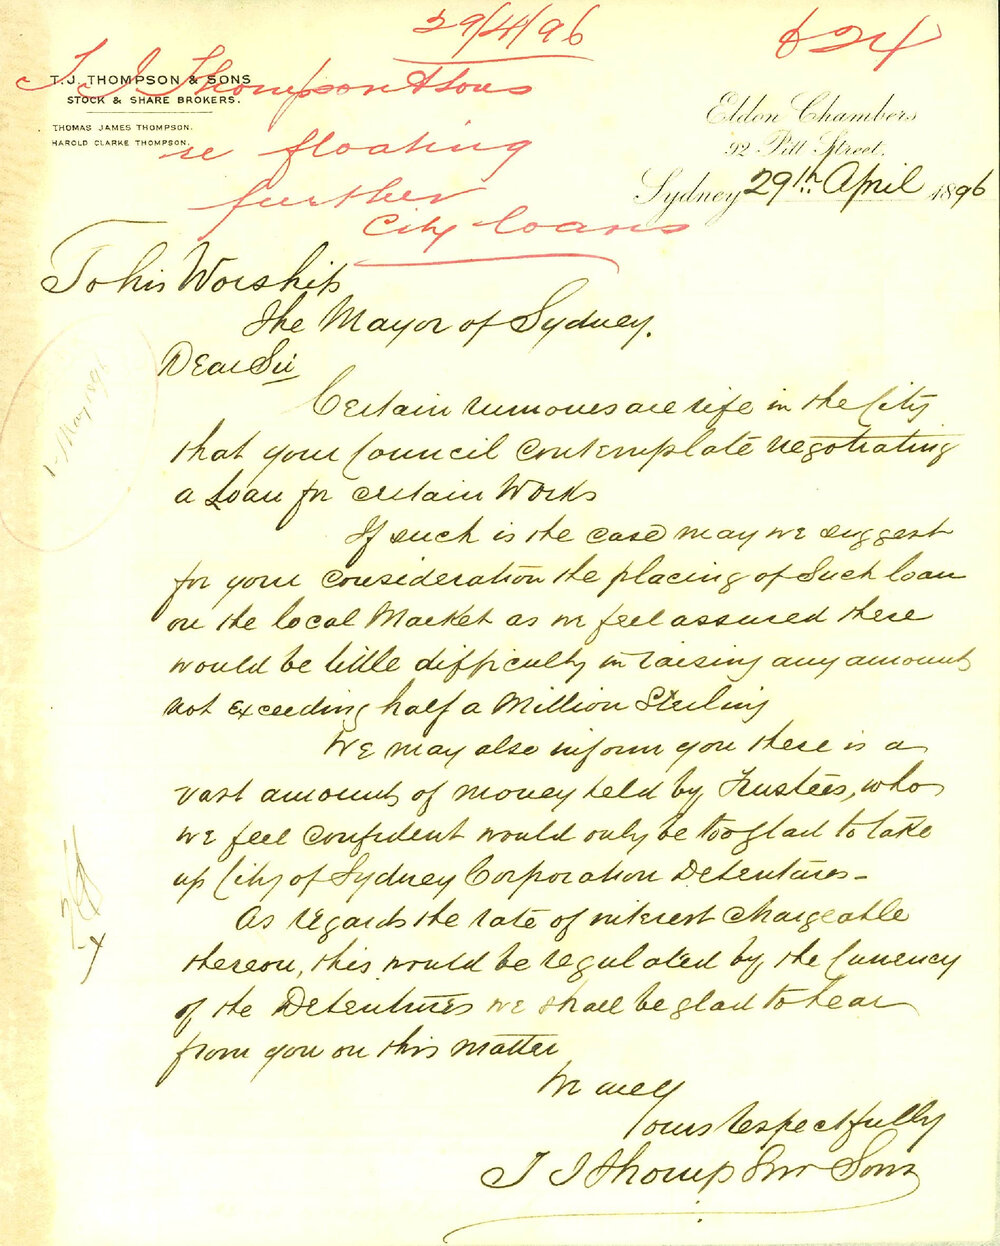 29/4/96
624
T. J. THOMPSON & SONS
STOCK & SHARE BROKERS.
THOMAS JAMES THOMPSON.
HAROLD CLARKE THOMPSON.
T. J. Thompson & Sons
re floating
further
City loans
Eldon Chambers
92 Pitt Street,
Sydney 29th April 1896
1 - May 1896
To his Worship
The Mayor of Sydney.
Dear Sir
Certain rumours are rife in the City
that your Council contemplate negotiating
a Loan for certain Works
If such is the case may we suggest
for your consideration the placing of such loan
on the local Market as we feel assured there
would be little difficulty in raising any amount
not exceeding half a Million Sterling
We may also inform you there is a
vast amount of money held by Trustees, who
we feel confident would only be too glad to take
up City of Sydney Corporation Debentures -
As regards the rate of interest chargeable
thereon, this would be regulated by the Currency
of the Debentures we shall be glad to hear
from you on this matter
We are
Yours respectfully
T J Thompson Sons